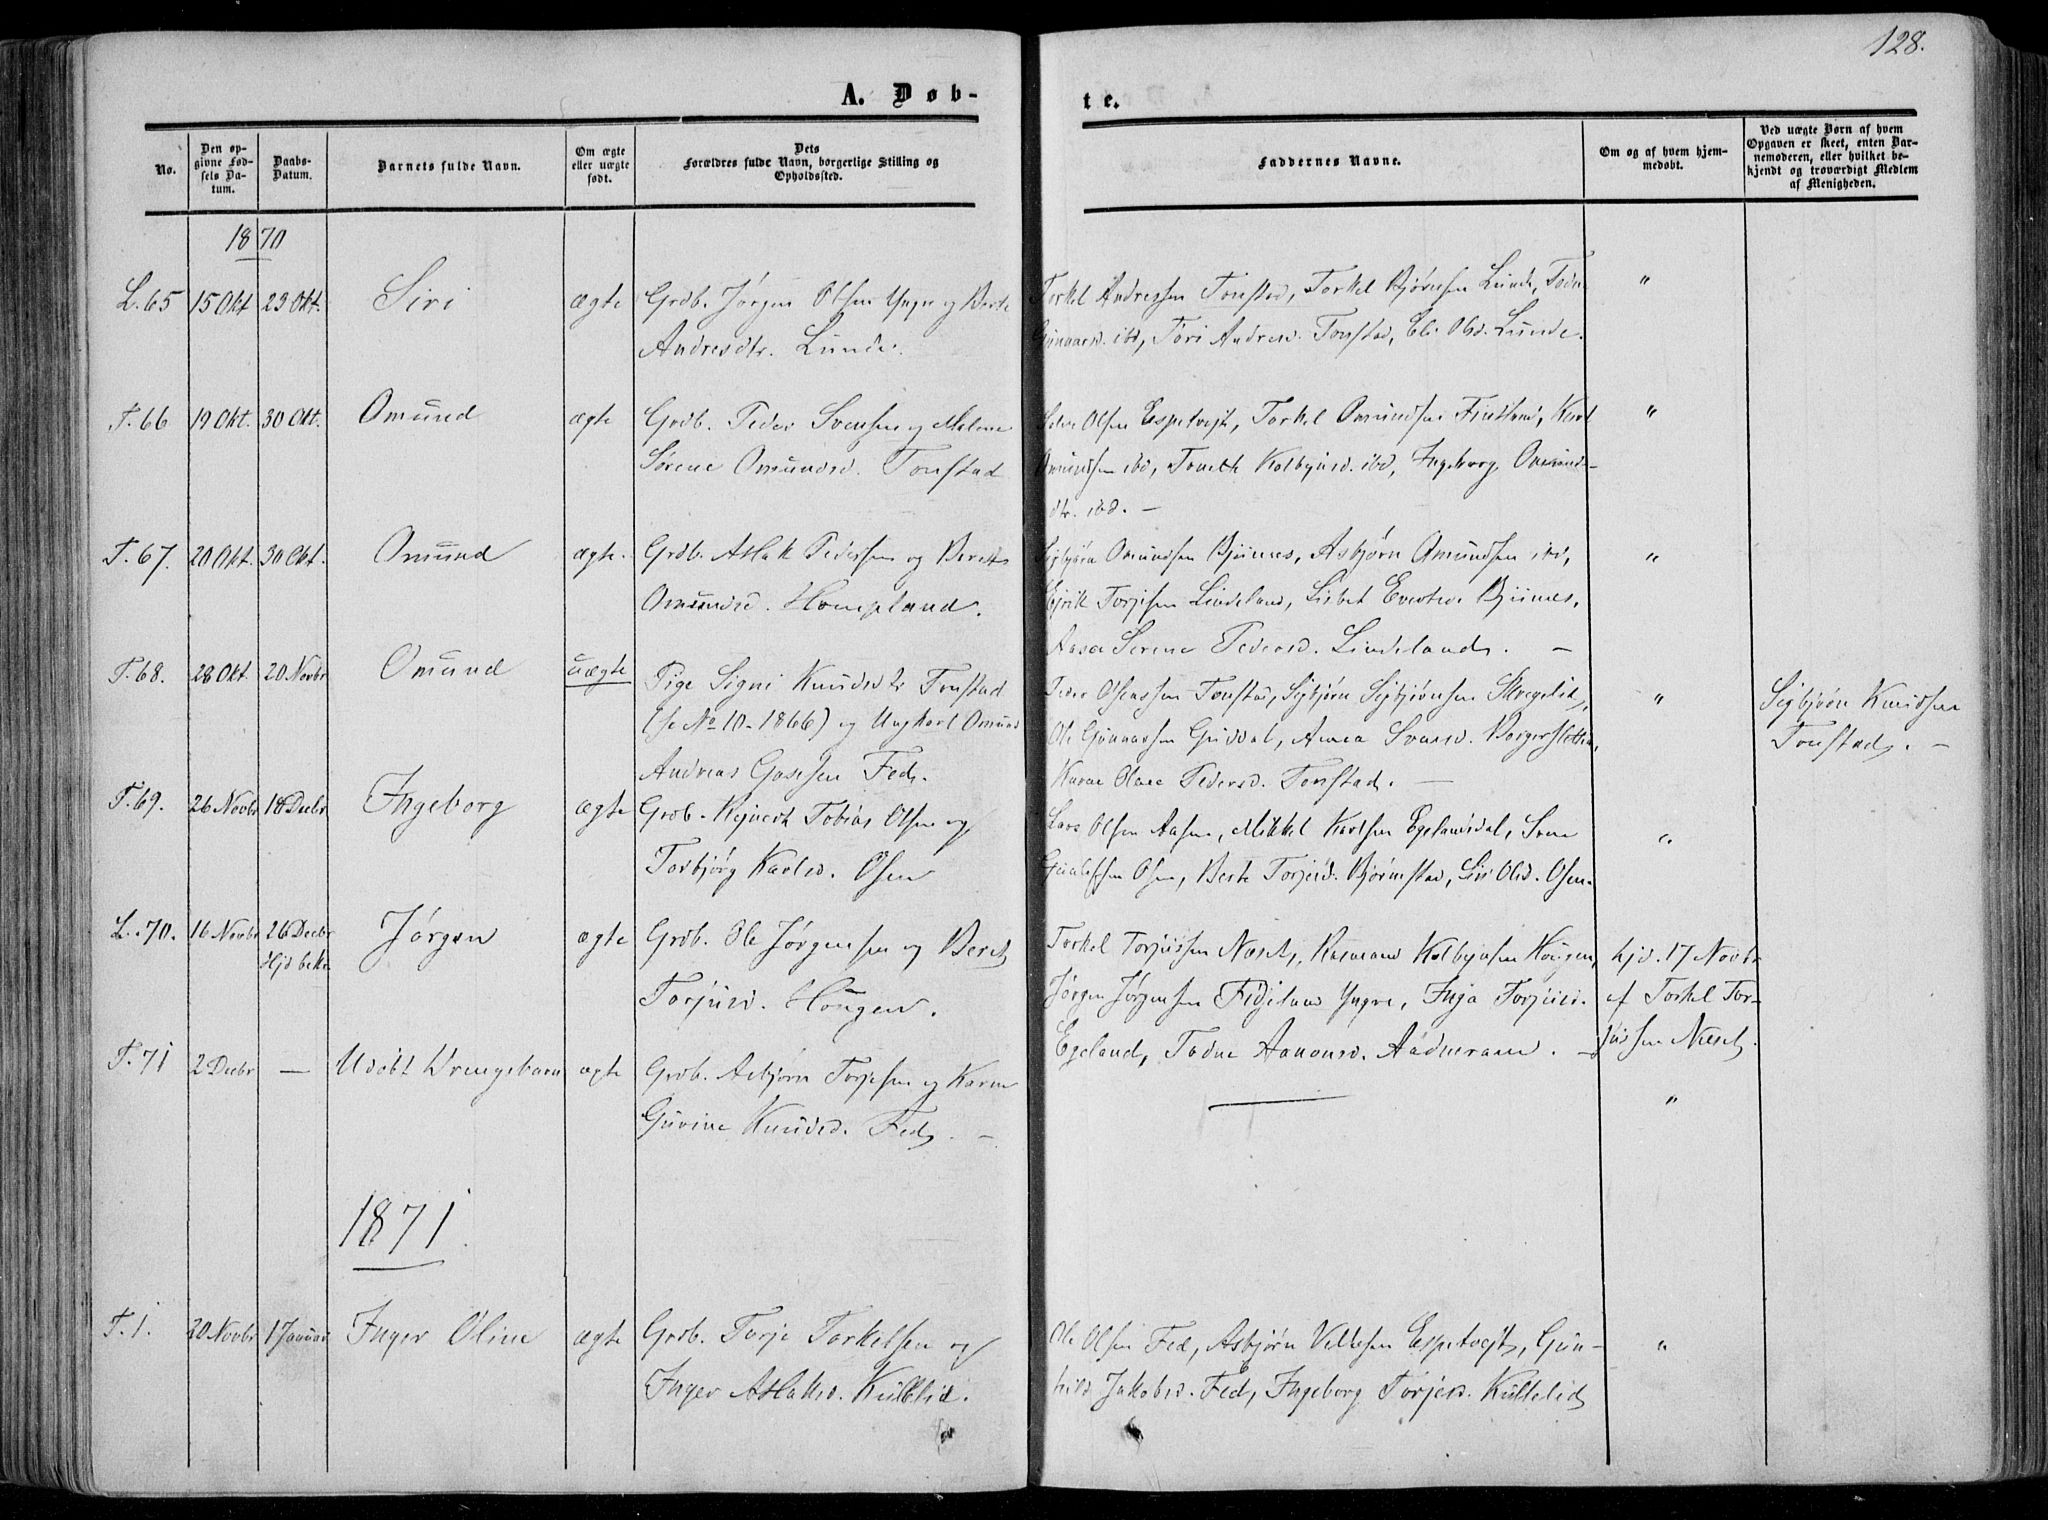 128.
A. Døb-
te.
No.
Den op-
givne Fød-
sels Da-
tum.
Daabs-
Datum.
Barnets fulde Navn.
Om ægte
eller uægte
født.
Dets
Forældres fulde Navn, borgerlige Stilling og
Opholdssted.
Faddernes Navne.
Om og af hvem hjem-
medøbt.
Ved uægte Børn af hvem
Opgaven er skeet, enten Bar-
nemoderen, eller hvilket be-
kjendt og troværdigt Medlem
af Menigheden.
1870
L. 65 15 Okt 23 Okt. Siri ægte Grdb. Jørgen Olsen Ygre og Berte
Andresdtr. Lunde.
Torkel Andressen Tonstad, Torkel Bjørnsen Lunde, Todne
Gunnarsd. ibd, Tori Andresd. Tonstad, Eli Olsd. Lunde.
"
T. 66 19 Okt. 30 Okt. Omund ægte Grdb. Peder Svensen og Malene
Sørene Omundsd. Tonstad
Olsen Espetvejt, Torkel Omundsen Fintland, Karl
Omundsen ibd, Toneth Kolbejnsd. ibd, Ingeborg Omunds-
dtr. ibd. —
"
T. 67. 20 Okt. 30 Okt. Omund ægte. Grdb. Aslak Pedersen og Berete
Omundsd. Hompland.
Sigbjørn Omundsen Bjunes, Asbjørn Omundsen ibd,
Ejrik Torjesen Lindeland, Lisbet Evertsd. Bjunes,
Aasa Serene Pedersd. Lindeland. —
"
T. 68. 28 Okt. 20 Novbr Omund uægte Pige Signi Knudsdtr Tonstad
(se No 10-1866) og Ungkarl Omund
Andreas Gasesen Fed.
Peder Osenssen Tonstad, Sigbjørn Sigbjørnsen Skregelid,
Ole Gunnarsen Guddal, Anna Svensd. Borgersletten,
Karen Olane Pedersd. Tonstad. —
"
Sigbjørn Knudsen
Tonstad. —
T. 69. 26 Novbr 18 Decbr Ingeborg ægte Grdb. Rejnert Tobias Olsen og
Torbjørg Karlsd. Osen
Lars Olsen Aasen, Mikkel Karlsen Egelandsdal, Sven
Gunlefsen Osen, Berte Torjesd. Bjørnestad, Siri Olsd. Osen.
"
L. 70. 16 Novbr 26 Decbr
Hjd bekr.
Jørgen ægte Grdb. Ole Jørgensen og Beret
Torjusd. Hougen.
Torkel Torjussen Næset, Rasmund Kolbejnsen Hougen,
Jørgen Jørgensen Fidjeland Ygre, Inga Torjusd.
Egeland, Todne Aanonsd. Aadneram. —
hjd. 17 Novbr
af Torkel Tor-
jussen Næset.
T. 71 2 Decbr — Udøbt Drengebarn ægte Grdb. Asbjørn Torjesen og Karen
Guvine Knudsd. Fed. —
"
1871.
T. 1. 20 Novbr 1 Januar Inger Oline ægte Grdb. Torje Torkelsen og
Inger Aslaksd. Kvitlelid.
Ole Olsen Fed, Asbjørn Vellesen Espetvejt, Gun-
hild Jakobsd. Fed, Ingeborg Torjesd. Kvitlelid
"